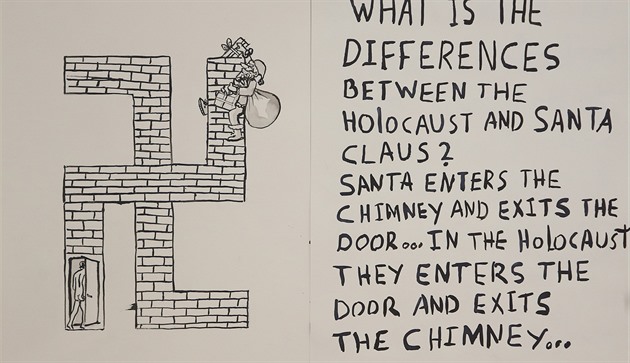 WHAT IS THE
DIFFERENCES
BETWEEN THE
HOLOCAUST AND SANTA
CLAUS?
SANTA ENTERS THE
CHIMNEY AND EXITS THE
DOOR... IN THE HOLOCAUST
THEY ENTERS THE
DOOR AND EXITS
THE CHIMNEY...